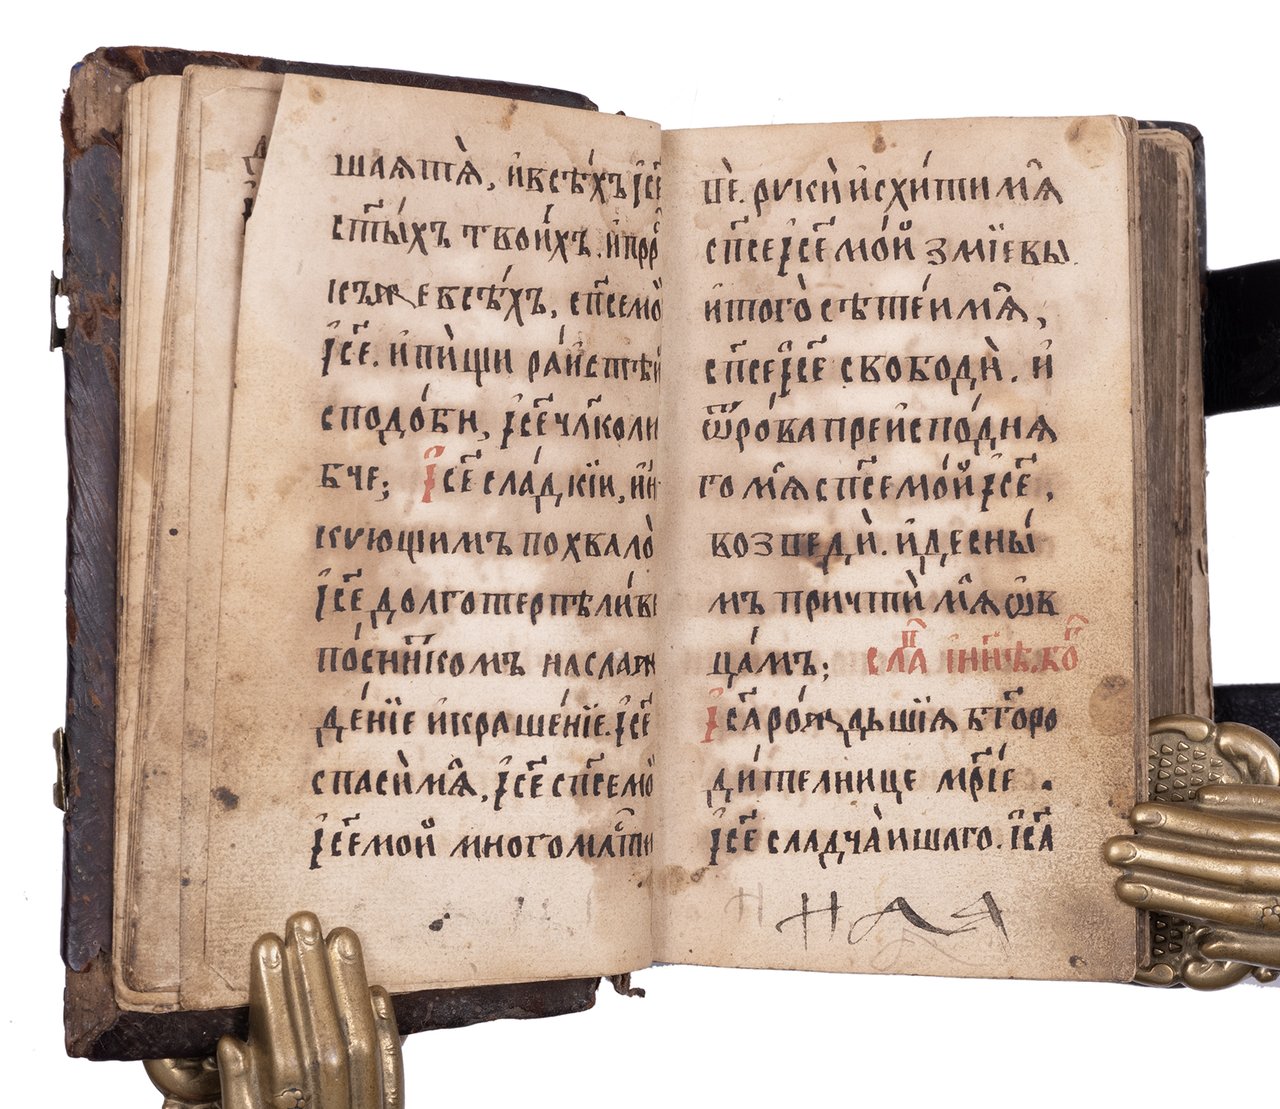 шаѧтѧ̀, и҆всѣ́хъ і҆с҃е
ст҃ы́хъ твои́хъ. и҆прⷪ҇р
къ́же всѣ́хъ, сп҃семо́
і҆с҃е. и҆пи́щи ра́йстѣй
сподо́би, і҆с҃е чл҃коли
бче; і҆с҃е сла́дкїи, и҆и
скꙋющимъ похвало̀
і҆с҃е долготерпѣли́ве
по́сни́комъ наслаж
де́нїе и҆краше́нїе. і҆с҃е
спаси́ мѧ̑, і҆с҃е сп҃семо́
і҆с҃емой многомлⷭ҇тив
шѐ. рꙋки̑ и҆схи́ти мѧ̑
сп҃се і҆с҃е мо́й змїевы.
и҆того̀ сѣте́и мѧ̑,
сп҃се і҆с҃е свободѝ. и҆
ѿро́ва преиспо́днѧ
го мѧ̑ сп҃се мо́й і҆с҃е,
возведѝ. и҆десны́
мъ причтѝ мѧ̑ ѡ҆в
ца́мъ; слаⷡ҇ і҆ни́нѣ. бⷪ҇
і҆с҃а ро́ждьшїѧ бг҃оро
ди́телнице мр҃і́е.
і҆с҃е сладча́ишаго. і҆с҃а
ная